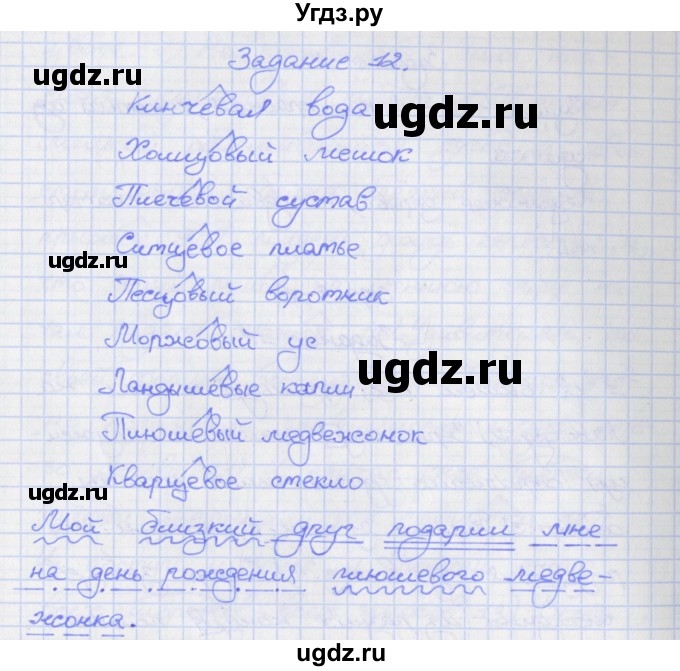 Угдз.ру
Задание 12.
ugdz.ru
Ключевая вода
ugdz.ru
Холщовый мешок
Плечевой сустав
Ситцевое платье
ugdz.ru
Песцовый воротник
Моржовый ус
ugdz.ru
Ландышевые капли
Плюшевый медвежонок
Кварцевое стекло
ugdz.ru
Мой близкий друг подарил мне
на день рождения плюшевого медве-
жонка.
ugdz.ru